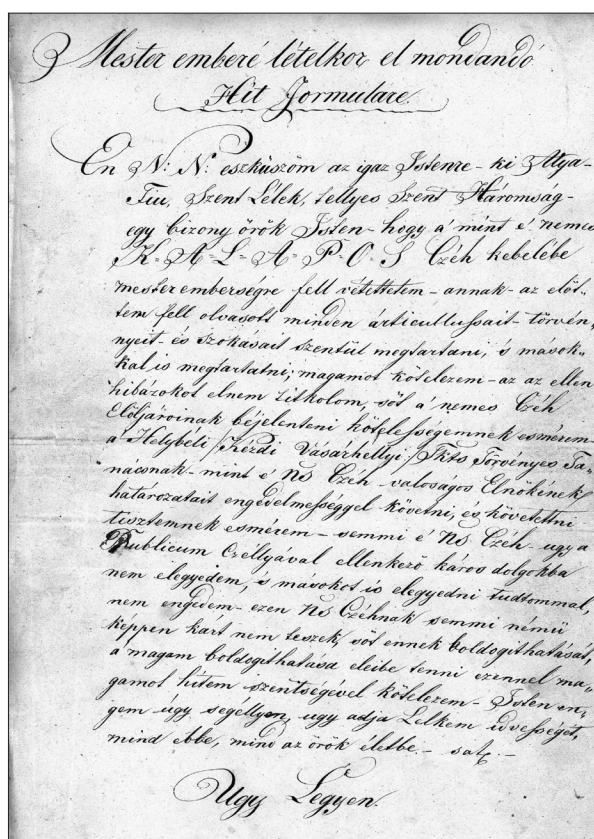 Mester emberé lételkor el mondandó
Hit Formulare.
En N: N: esküszöm az igaz Istenre - ki Atya-
Fiu, Szent Lélek, tellyes Szent Háromság-
egy bizony örök Isten - hogy a' mint é nemes
K=A=L=A=P=O=S Czéh kebelébe
mester emberségre fell vétettetem - annak - az előt-
tem fell olvasott minden árticullussait - törvén-
nyeit - és szokásait szentül megtartani, s mások-
kal is megtartatni; magamot kötelezem - az az ellen
hibázokot elnem titkolom, söt a' nemes Czéh
Elöljáróinak béjelenteni kötelességemnek esmérem -
a Helybéli /: Kézdi Vásárhellyi :/ Tkts Törvényes Ta-
nácsnak - mint é Ns Czéh - valoságos Elnökének
határozatait engedelmességgel követni, és követtetni
tisztemnek esmérem - semmi é Ns Czéh - ugy a
Publicum Czellyával ellenkező káros dolgokba
nem elegyedem, s másokot is elegyedni tudtommal,
nem engedem - ezen Ns Czéhnak semmi némü
képpen kárt nem teszek, söt ennek boldogithatását,
a magam boldogithatása eleibe tenni ezennel ma-
gamot hitem szentségével kötelezem - Isten en-
gem úgy segellyen, ugy adja Lelkem idvességét,
mind ebbe, mind az örök életbe. -
Ugy Legyen.